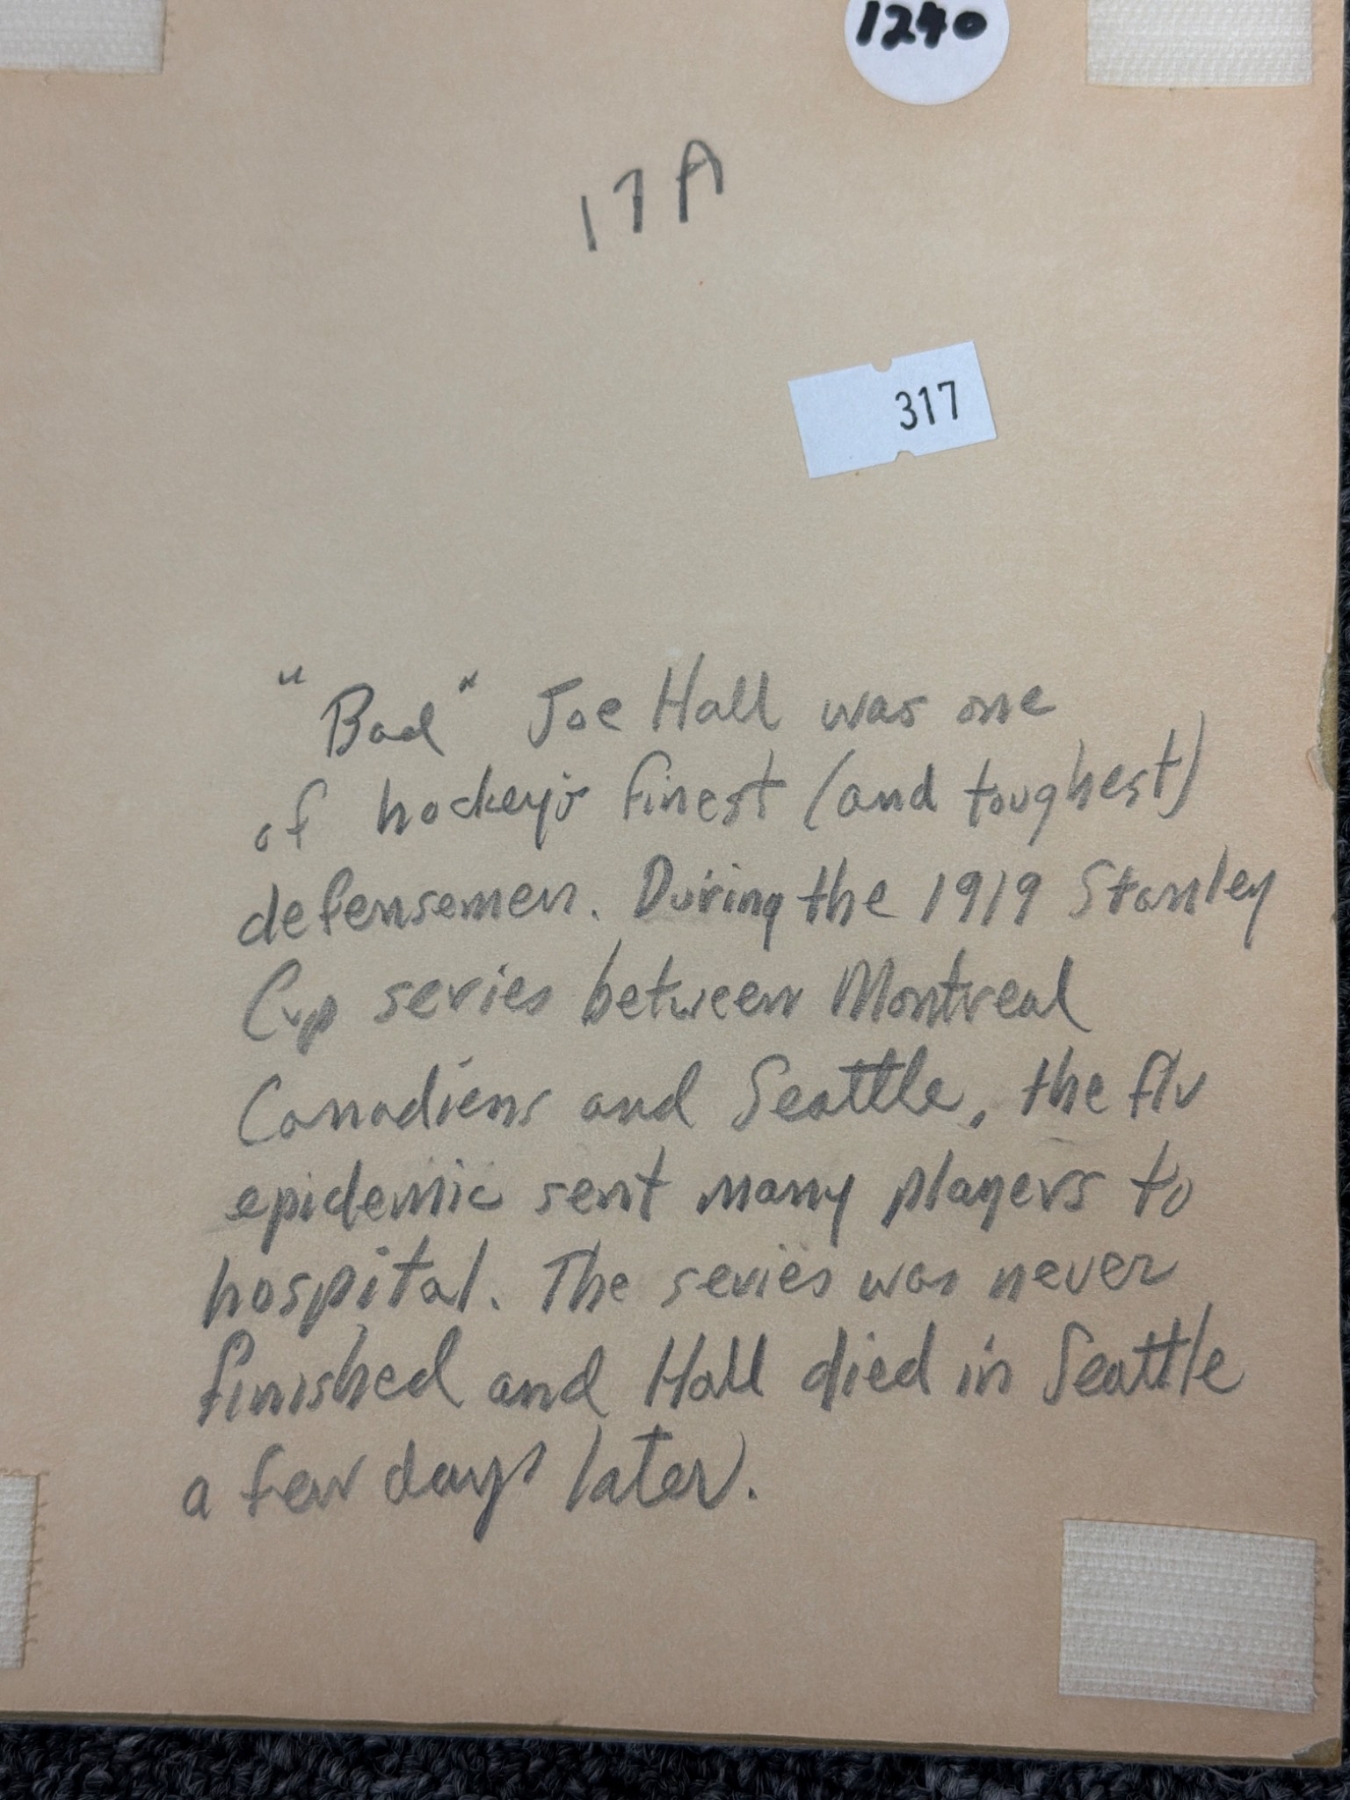 1240
17A
317
"Bad" Joe Hall was one
of hockey's finest (and toughest)
defensemen. During the 1919 Stanley
Cup series between Montreal
Canadiens and Seattle, the flu
epidemic sent many players to
hospital. The series was never
finished and Hall died in Seattle
a few days later.